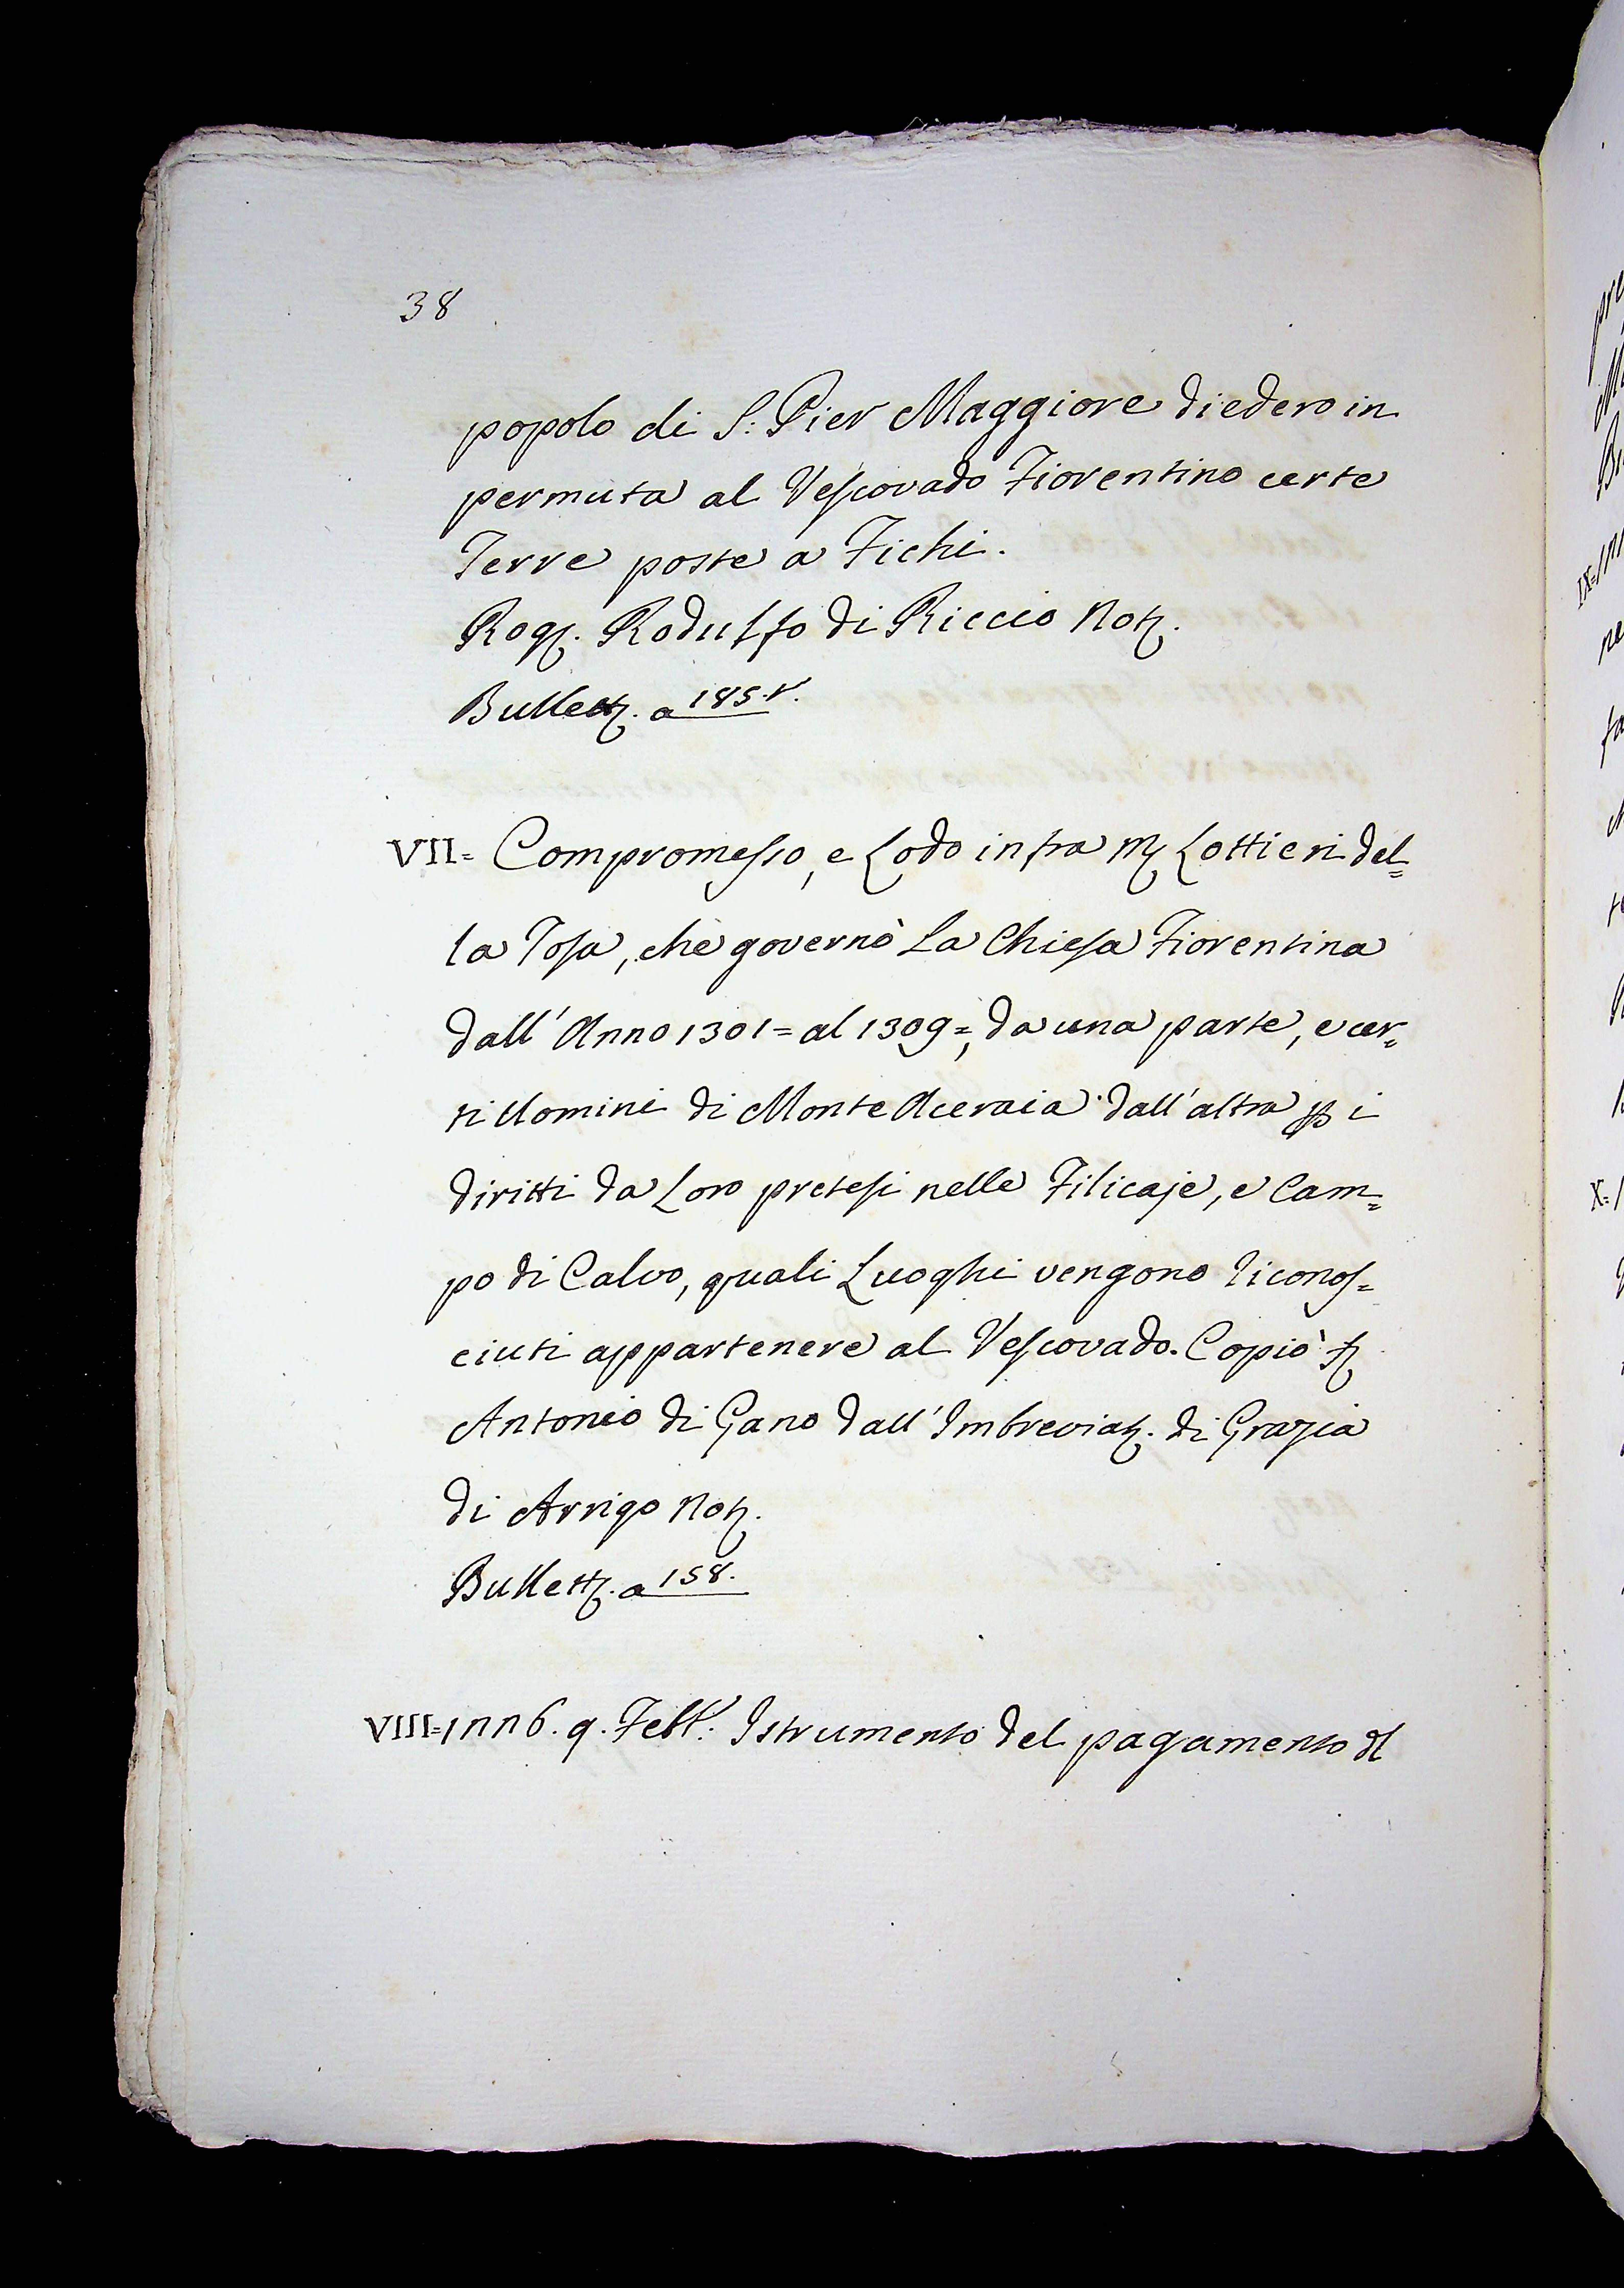 38
popolo di S: Pier Maggiore diedero in
permuta al Vescovado Fiorentino certe
Terre poste a Fichi.
Rog. Rodulfo di Riccio Not.
Bullett. a 185.v.
VII= Compromesso, e Lodo infra M Lottieri del=
la Tosa, che governò La Chiesa Fiorentina
dall'Anno 1301= al 1309=, da una parte, e cer=
ti Uomini di Monte Aceraia dall'altra p i
diritti da Loro pretesi nelle Filicaje, e Cam=
po di Calvo, quali Luoghi vengono riconos=
ciuti appartenere al Vescovado. Copiò S
Antonio di Gano dall'Imbreviat. di Grazia
di Arrigo Not.
Bullett. a 158.
VIII= 1226. 9. Febb: Istrumento del pagamento dl